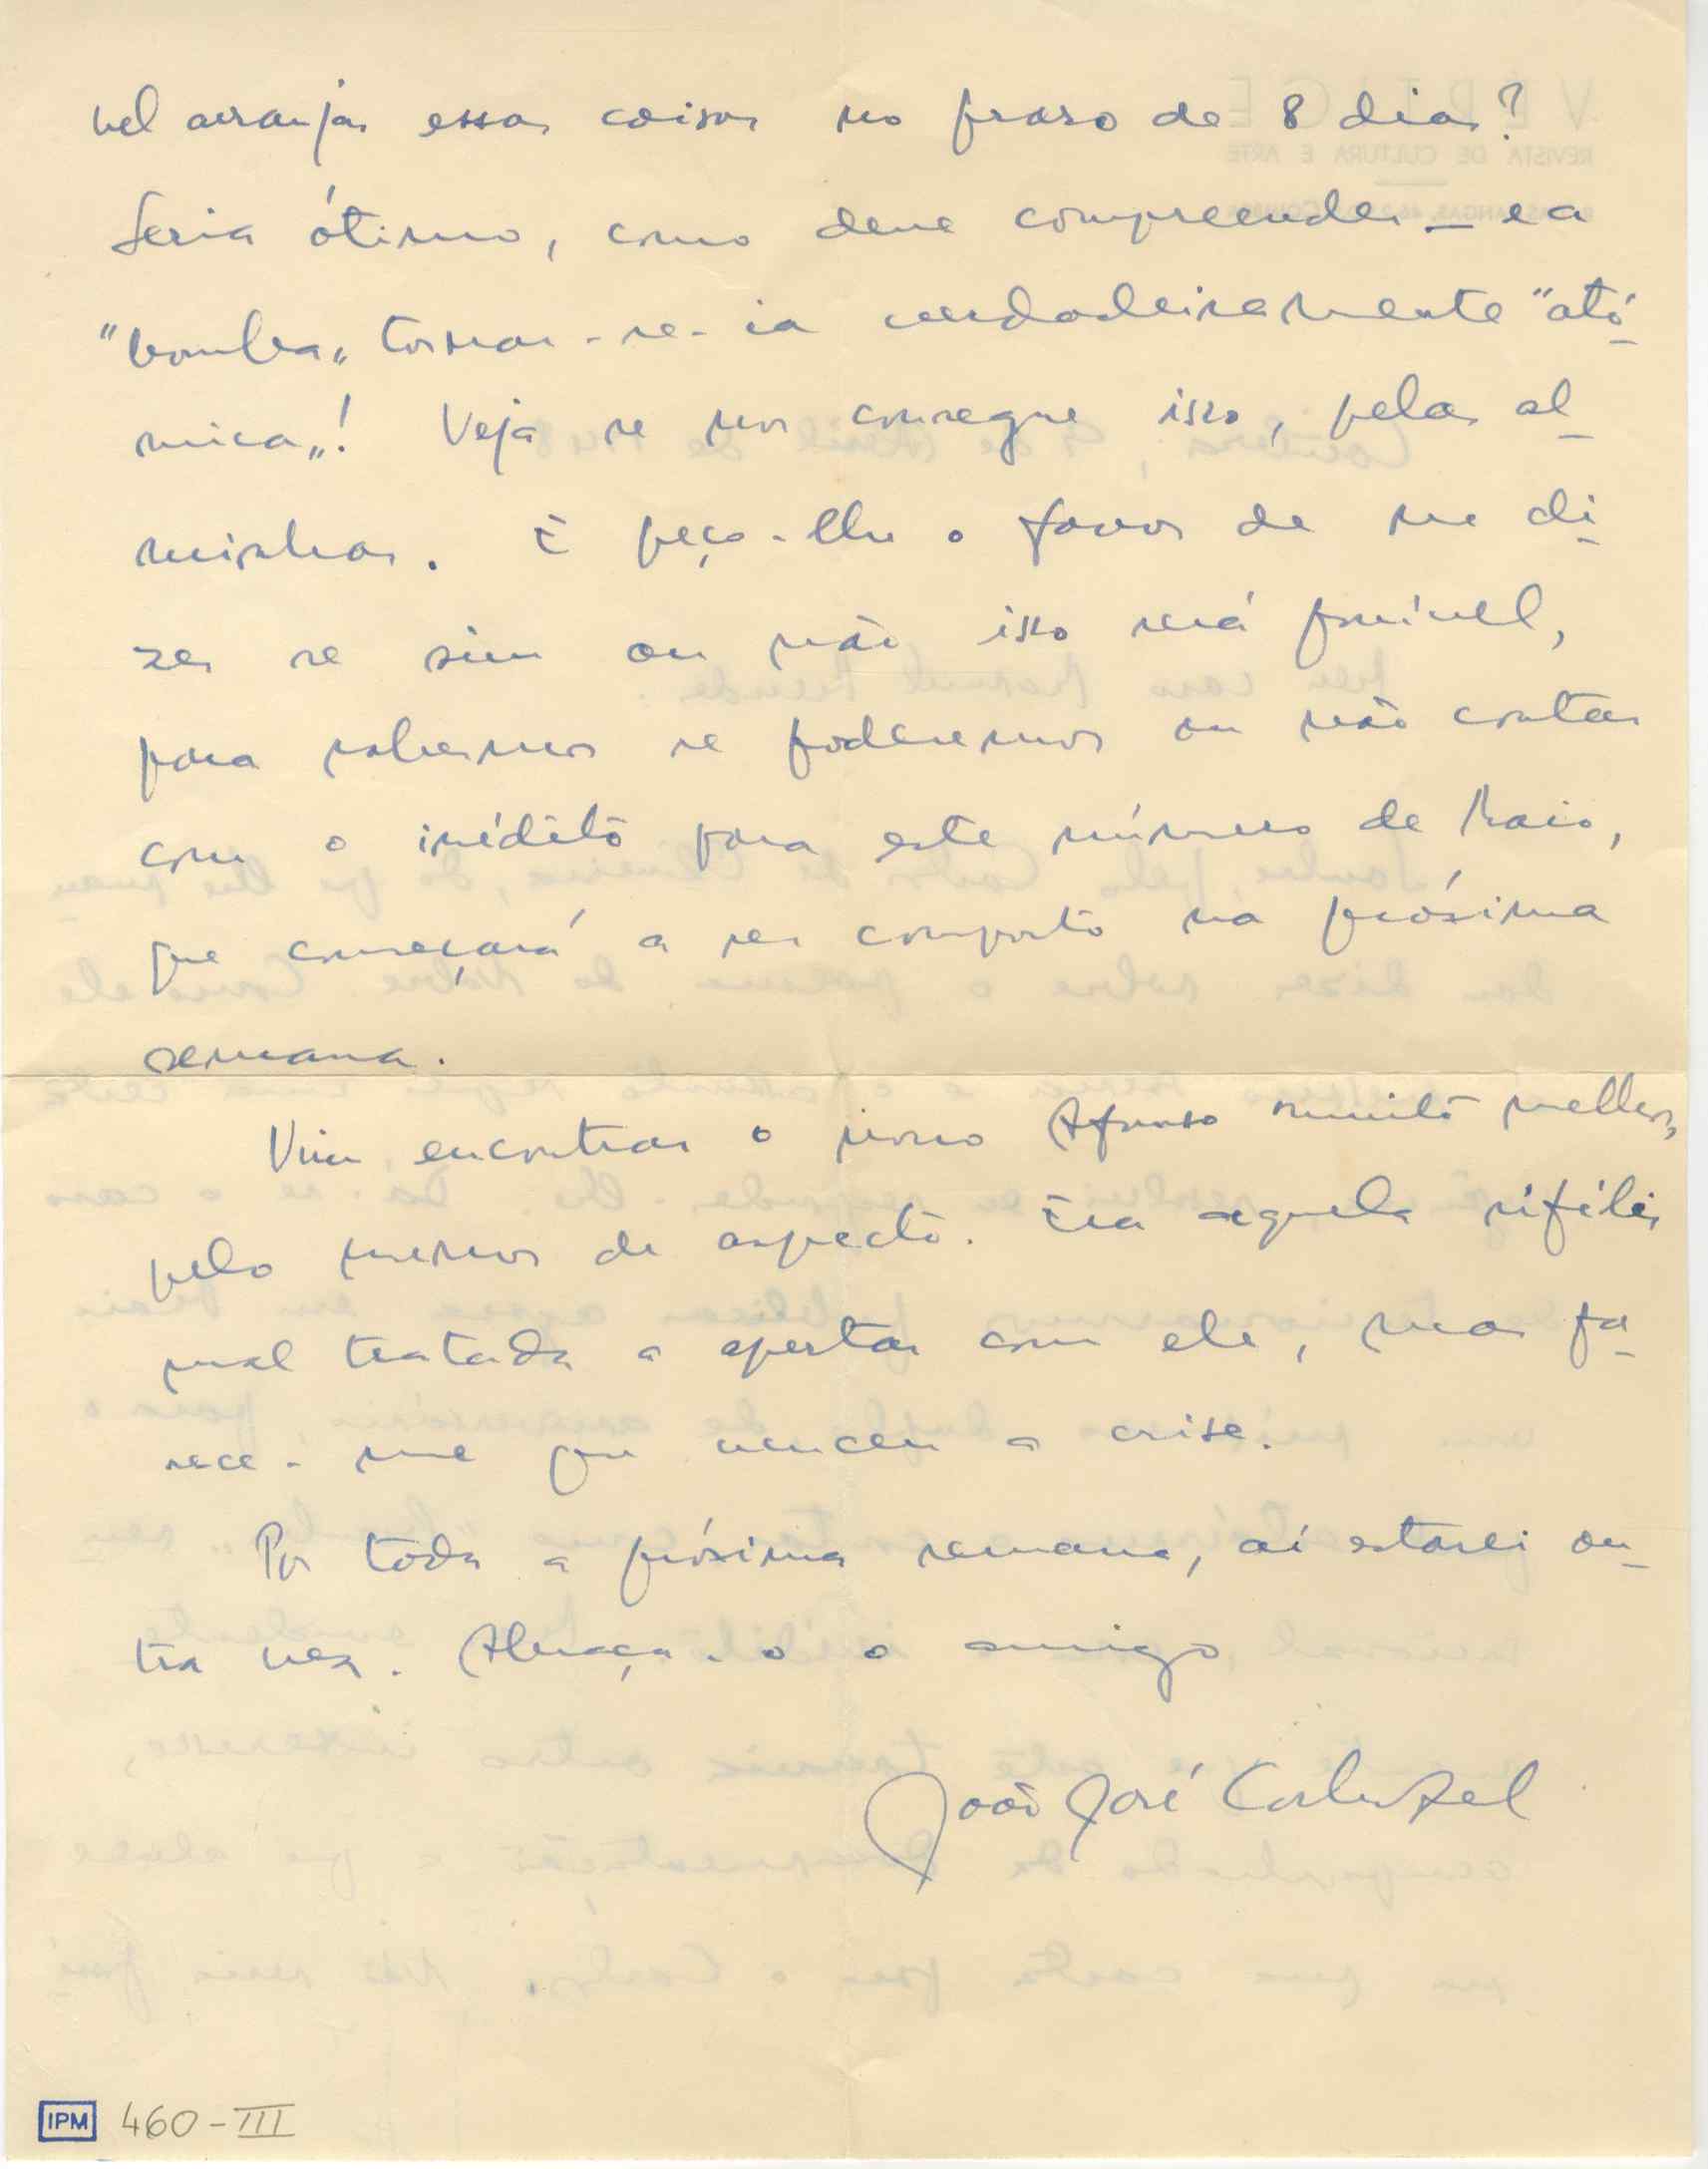 vel arranjar essas coisas no praso de 8 dias?
Seria ótimo, como deve compreender – e a
"bomba" tornar-se-ia verdadeiramente "ató-
mica"! Veja se nos consegue isso, pelas al-
minhas. E peço-lhe o favor de me di-
zer se sim ou não isso será possível,
para sabermos se poderemos ou não contar
com o inédito para este número de Maio,
que começará a ser composto na próxima
semana.
Vim encontrar o nosso Afonso muito melhor,
pelo menos de aspecto. Era aquela sífilis
mal tratada a apertar com ele, mas pa-
rece-me que venceu a crise.
Por toda a próxima semana, aí estarei ou-
tra vez. Abraça-o o amigo
João José Cochofel
IPM 460-III